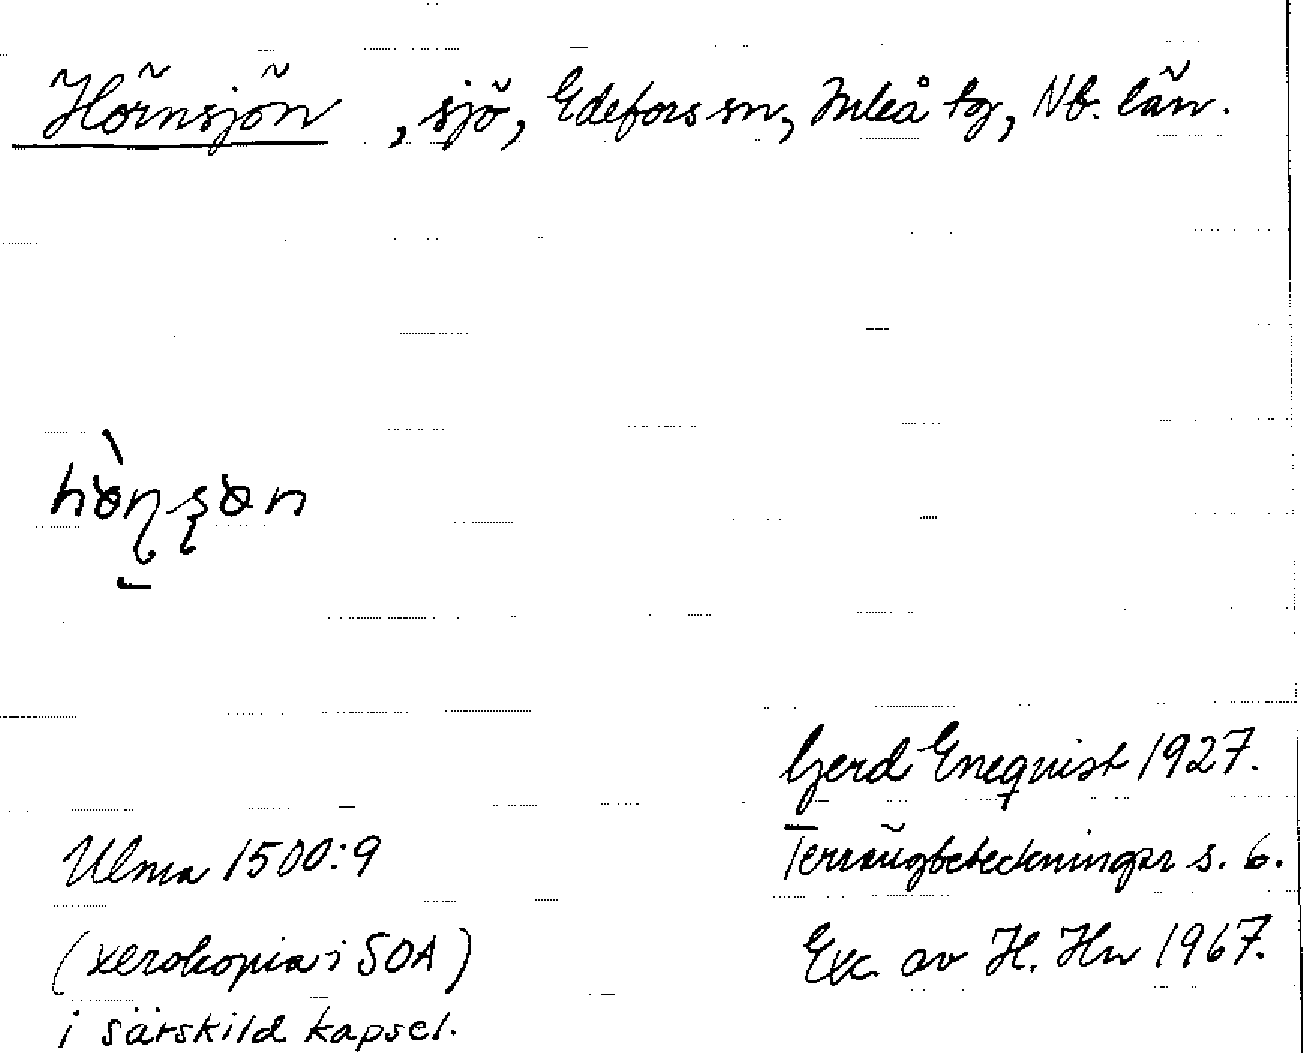 Hörnsjön, sjö, Edefors sn, Luleå tg, Nb. län.
Gerd Enequist 1927.
Ulma 1500:9
Terrängbeteckningar s. 6.
(xerokopia i SOA)
Exc. av H. Hn 1967.
i särskild kapsel.